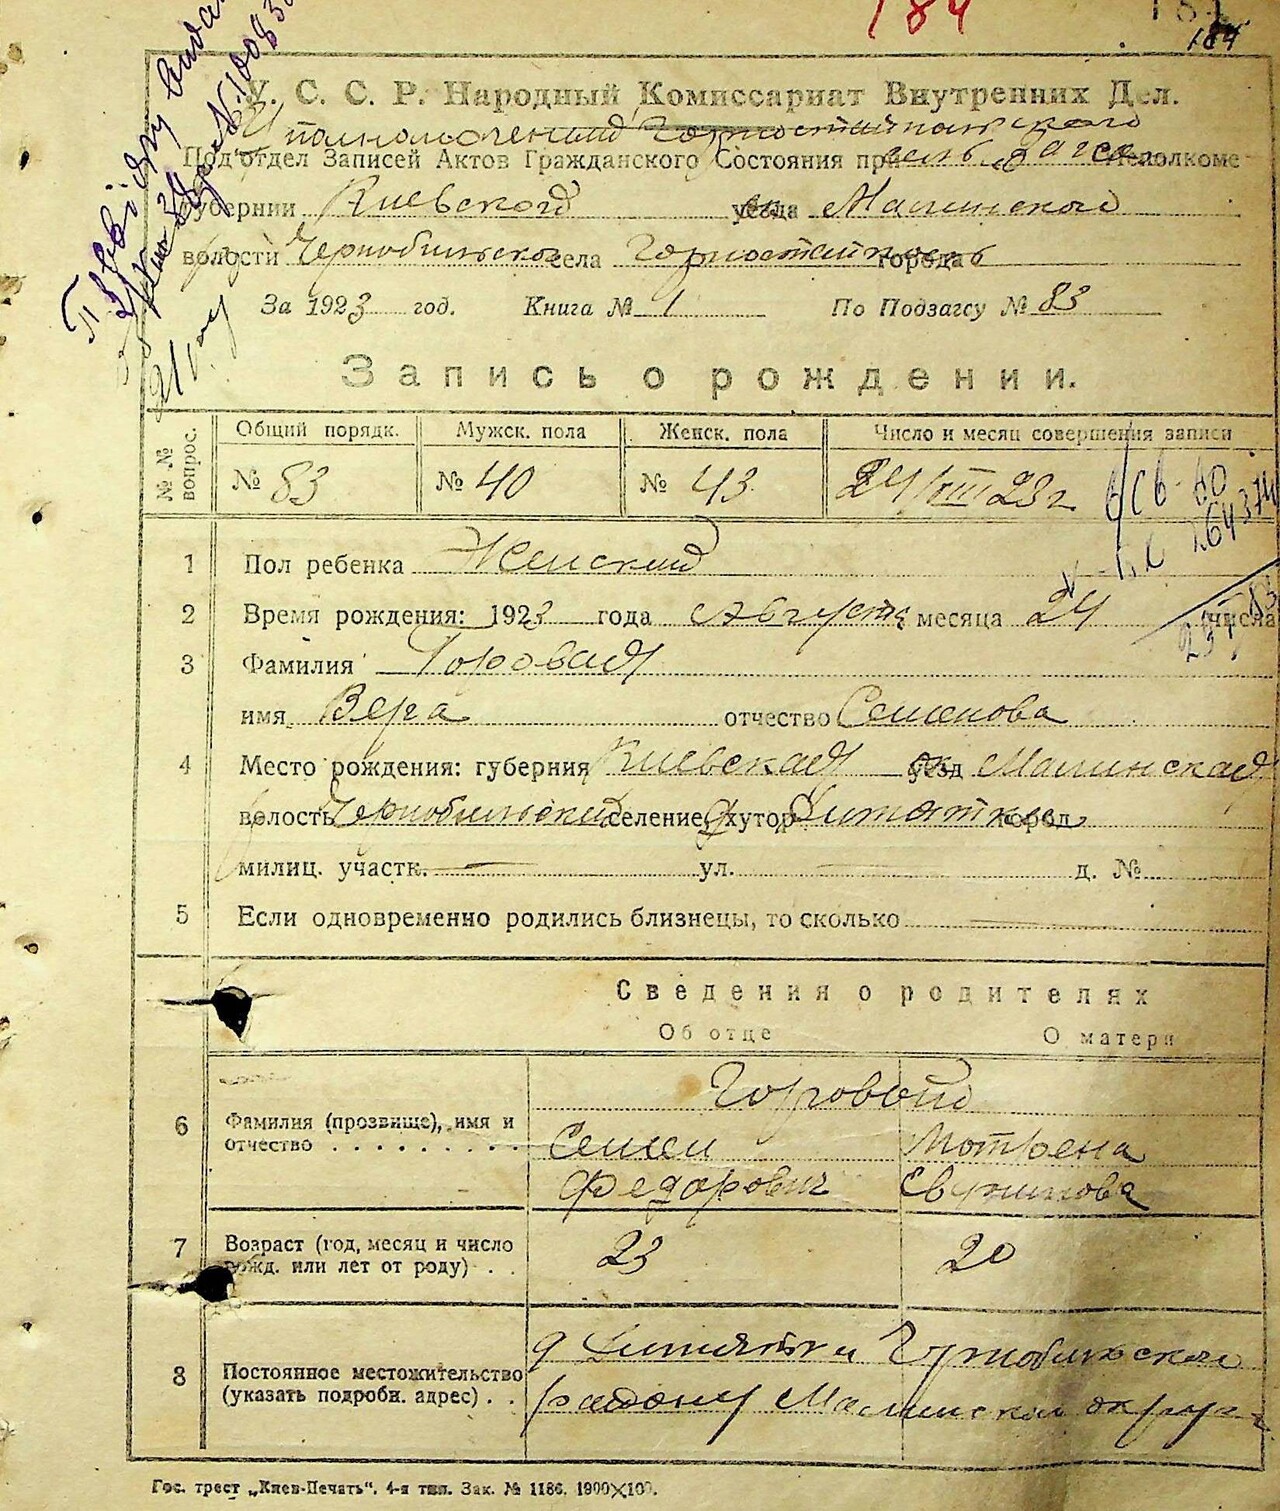 184
184
У. С. С. Р. Народный Комиссариат Внутренних Дел.
Уполномоченный Горностайпольского
Под'отдел Записей Актов Гражданского Состояния при сель загса исполкоме
губернии Киевской уезда Малинской
волости Чернобыльской села Горностайполь города
За 1923 год. Книга № 1 По Подзагсу № 83
Запись о рождении.
№№ вопрос. Общий порядк. Мужск. пола Женск. пола Число и месяц совершения записи
№ 83 № 40 № 43 24/VIII 23 г.
1 Пол ребенка Женский
2 Время рождения: 1923 года Августа месяца 24 числа
3 Фамилия Горовая
имя Вера отчество Семенова
4 Место рождения: губерния Киевская уезд Малинская
волость Чернобыльский селение, хутор город
милиц. участк. — ул. — д. №
5 Если одновременно родились близнецы, то сколько —
Сведения о родителях
Об отце О матери
Горовый
6 Фамилия (прозвище), имя и отчество Семен Мотрена
Федорович
7 Возраст (год, месяц и число рожд. или лет от роду) 23 20
8 Постоянное местожительство (указать подробн. адрес) д Чернобыльской
району Малинской округи
Гос. трест „Киев-Печать“. 4-я тип. Зак. № 1186. 1900×100.